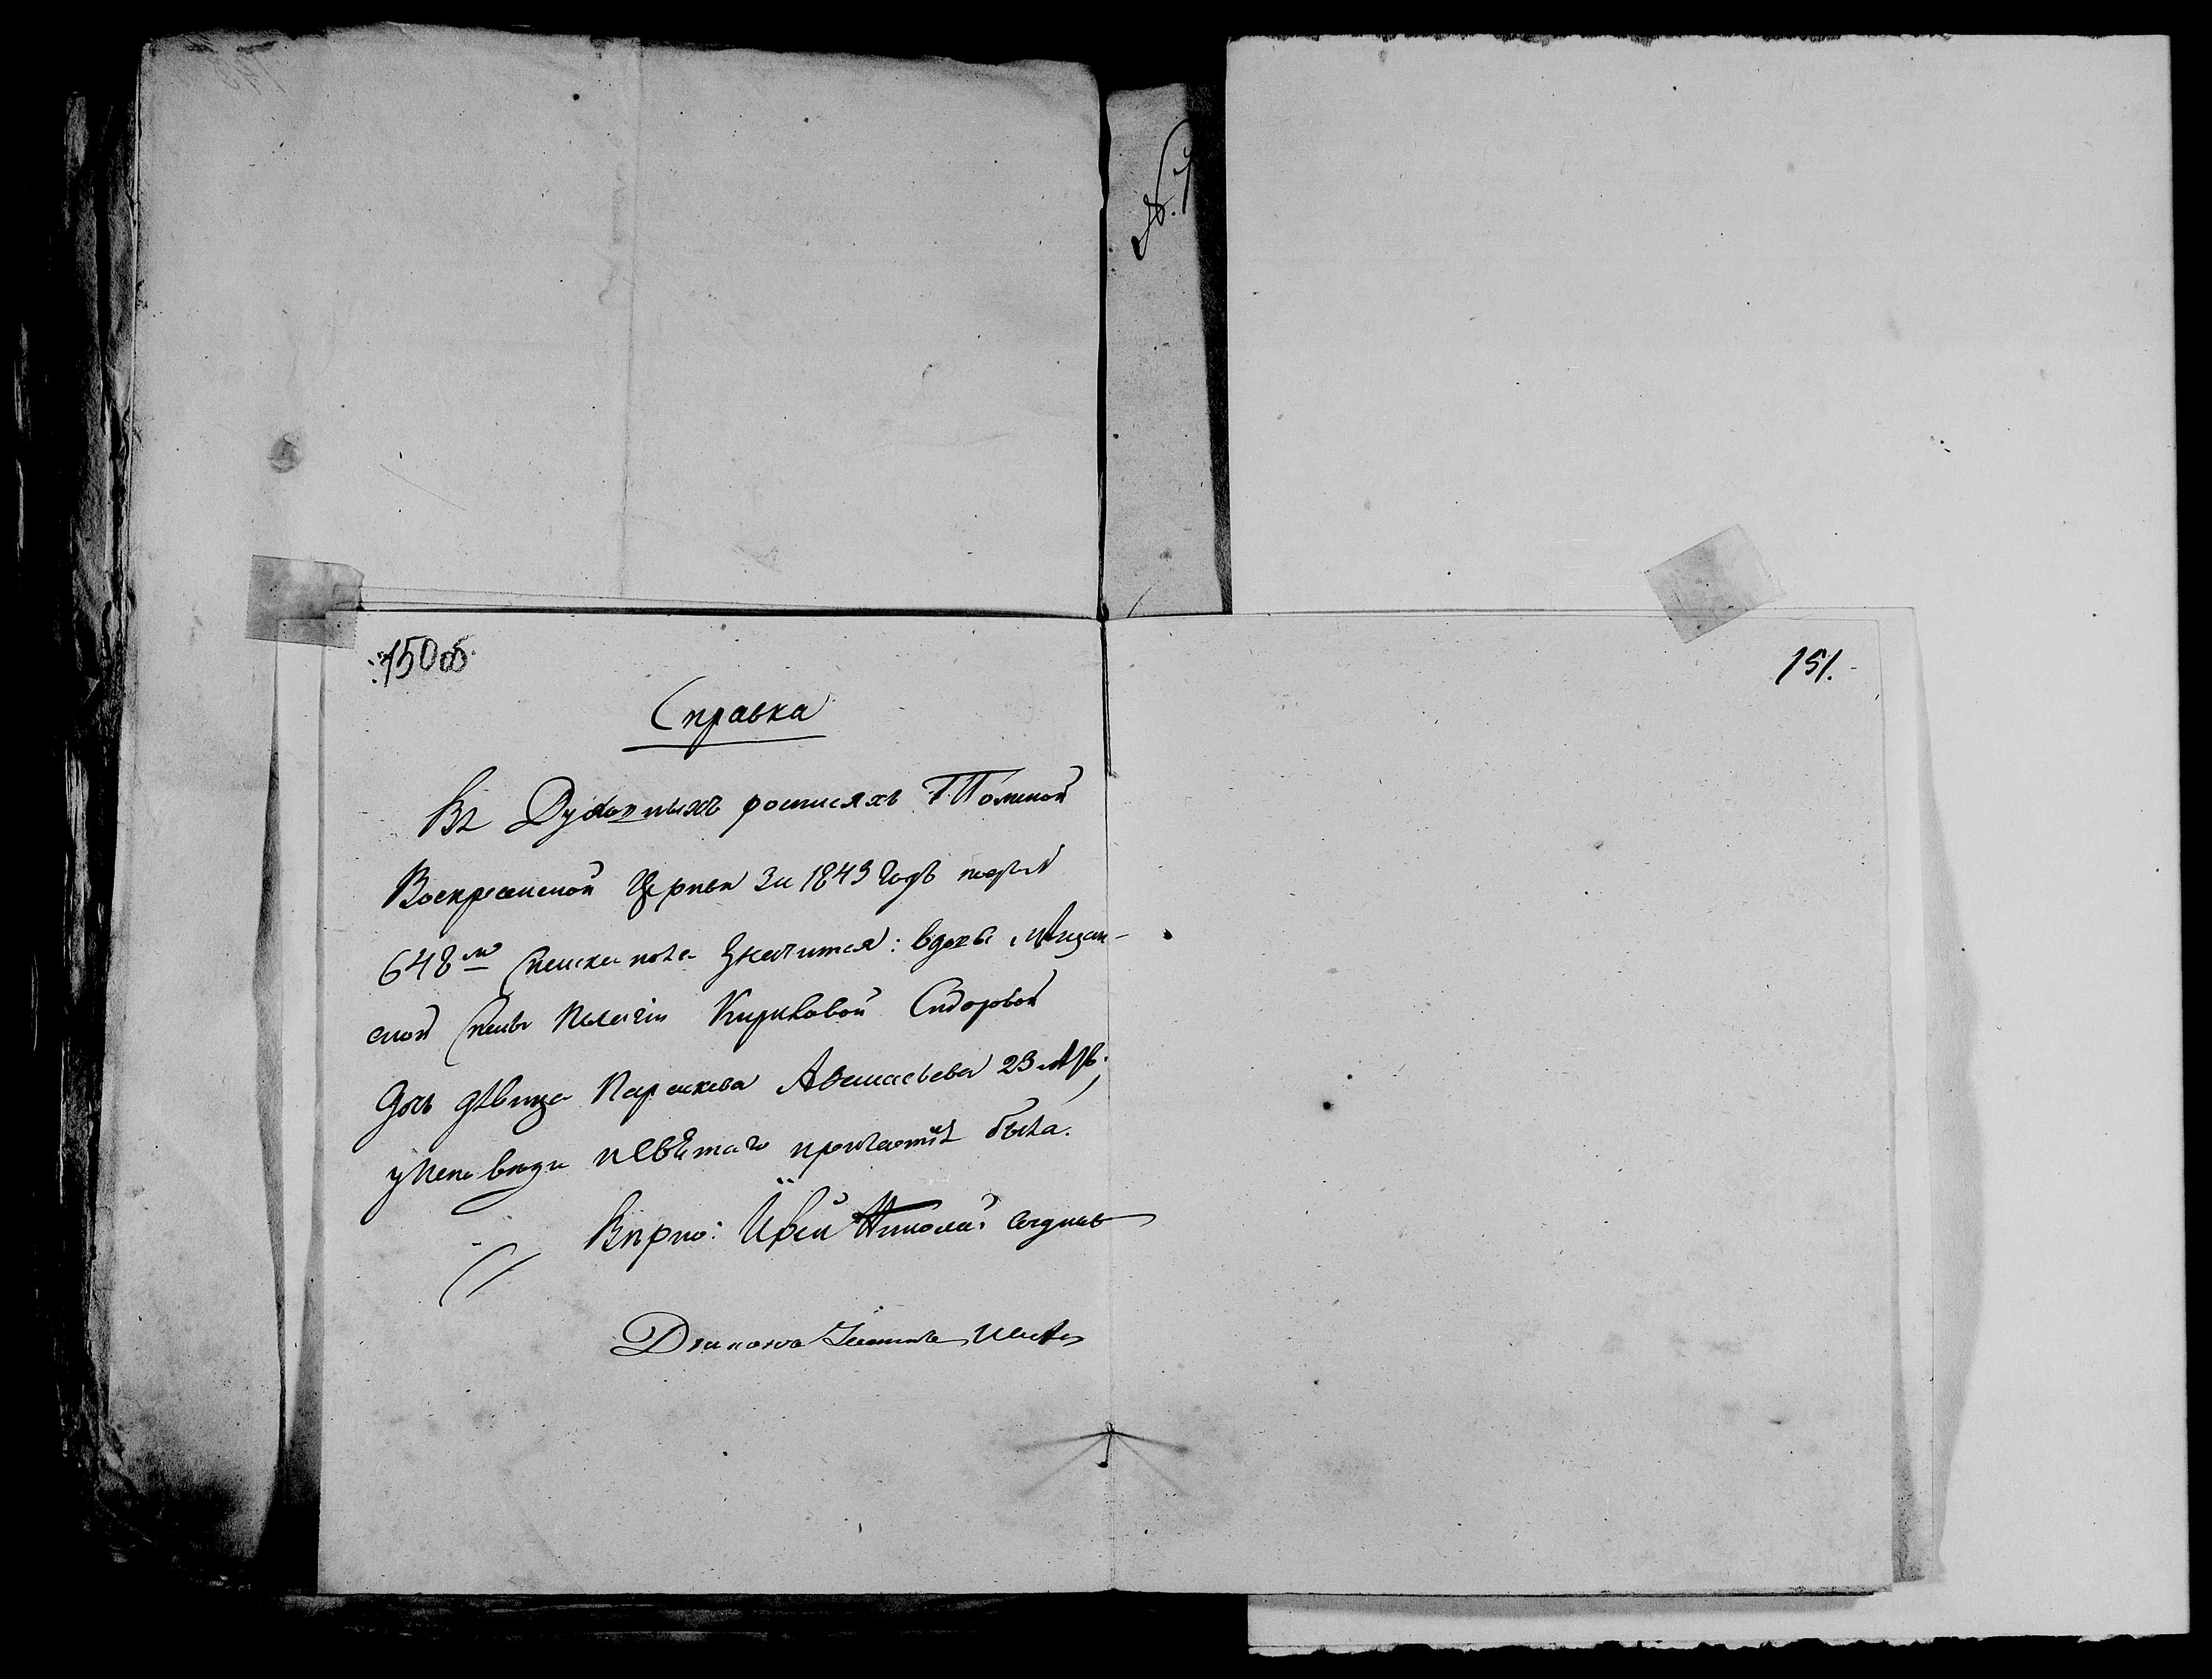 150 об.
151.
Справка
Въ Духовныхъ росписяхъ Г. Томской
Воскресенской Церкви За 1849 годъ подъ №
648 м женска пола Значится: вдовы Мѣщан-
ской жены Пелагіи Кириловой Сидоровой
дочь дѣвица Параскева Аѳанасьева 23 лѣтъ,
у исповѣди и Святаго причастія была.
Вѣрно: Іерей Николай